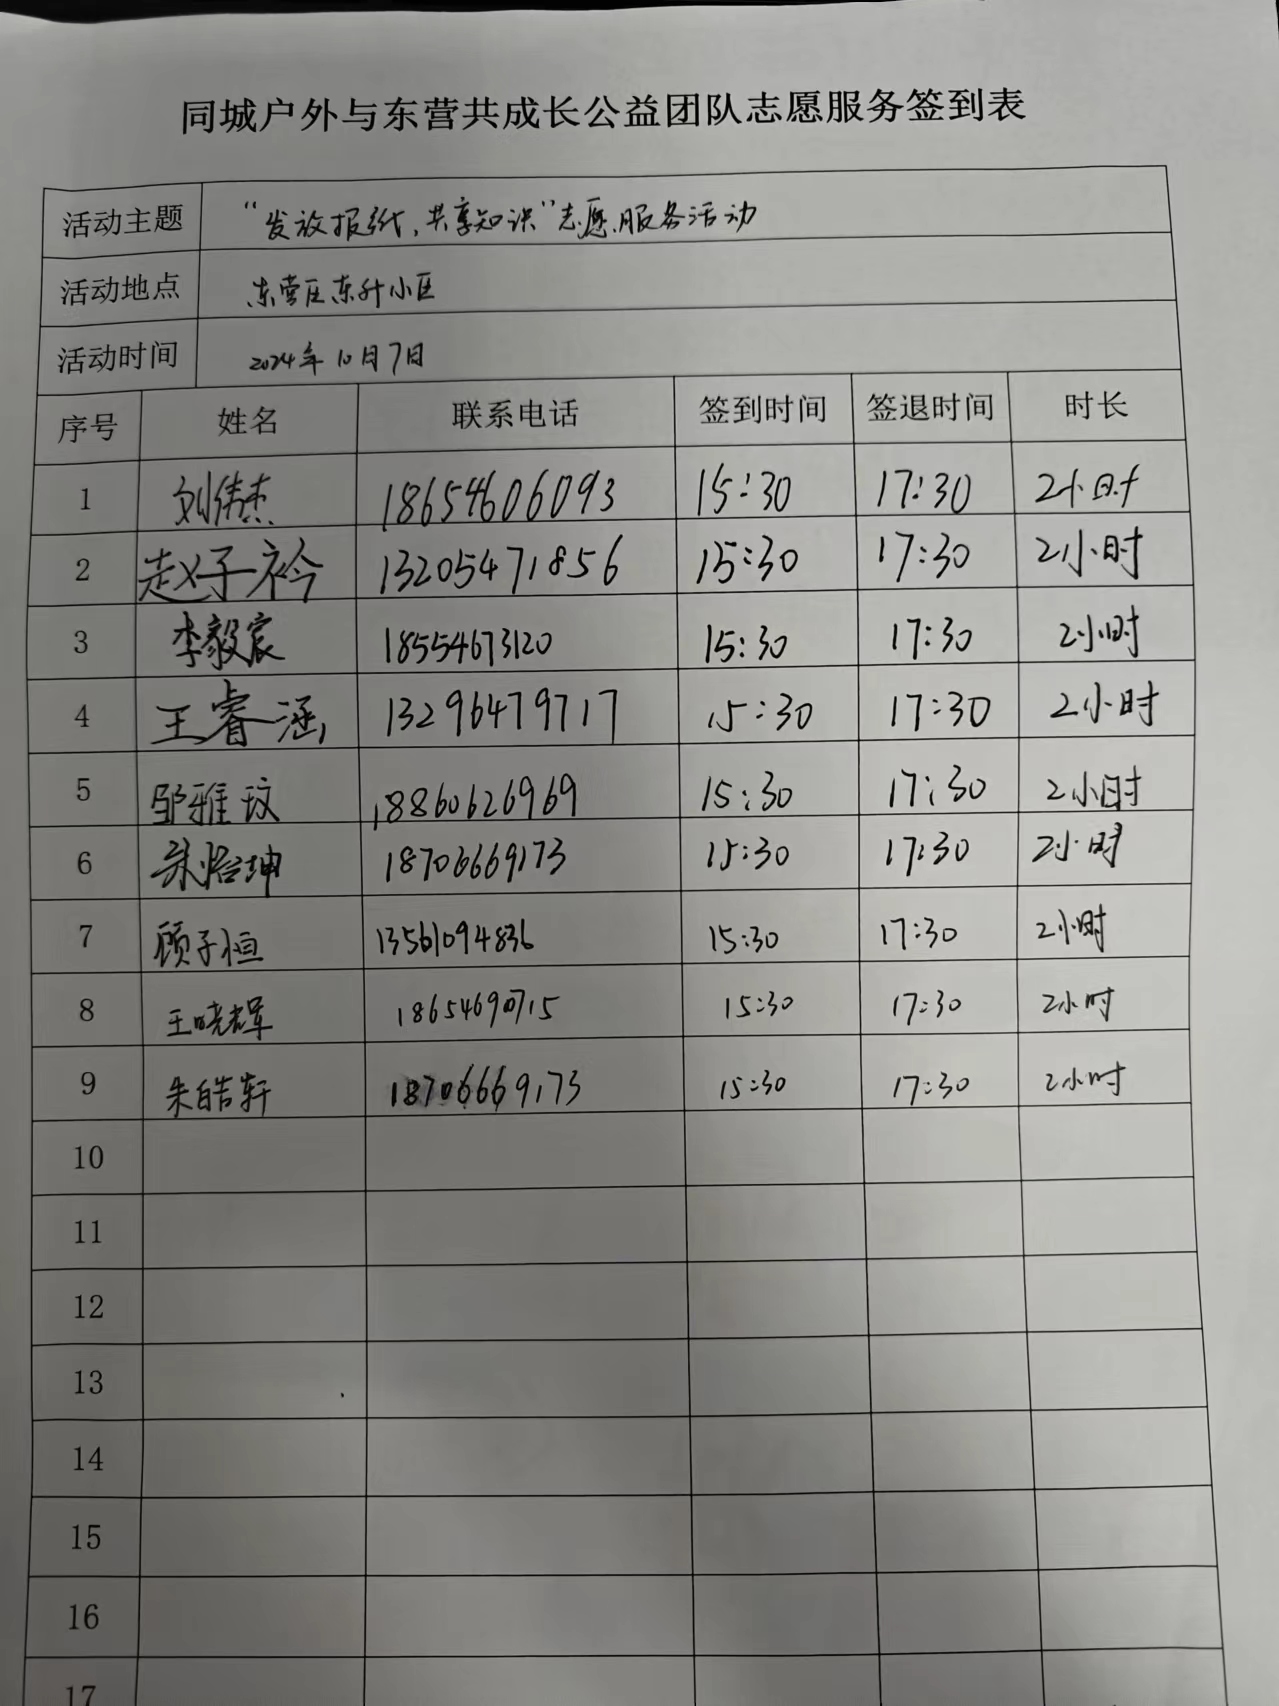 同城户外与东营共成长公益团队志愿服务签到表
活动主题 “发放报纸,共享知识”志愿服务活动
活动地点 东营区东升小区
活动时间 2024年10月7日
序号 姓名 联系电话 签到时间 签退时间 时长
1 刘伟杰 18654606093 15:30 17:30 2小时
2 赵子衿 13205471856 15:30 17:30 2小时
3 李毅宸 18554673120 15:30 17:30 2小时
4 王睿涵 13296479717 15:30 17:30 2小时
5 邹雅玟 18860626969 15:30 17:30 2小时
6 朱怡坤 18706669173 15:30 17:30 2小时
7 顾子恒 13561094836 15:30 17:30 2小时
8 王晓辉 15:30 17:30 2小时
9 朱皓轩 18706669173 15:30 17:30 2小时
10
11
12
13
14
15
16
17